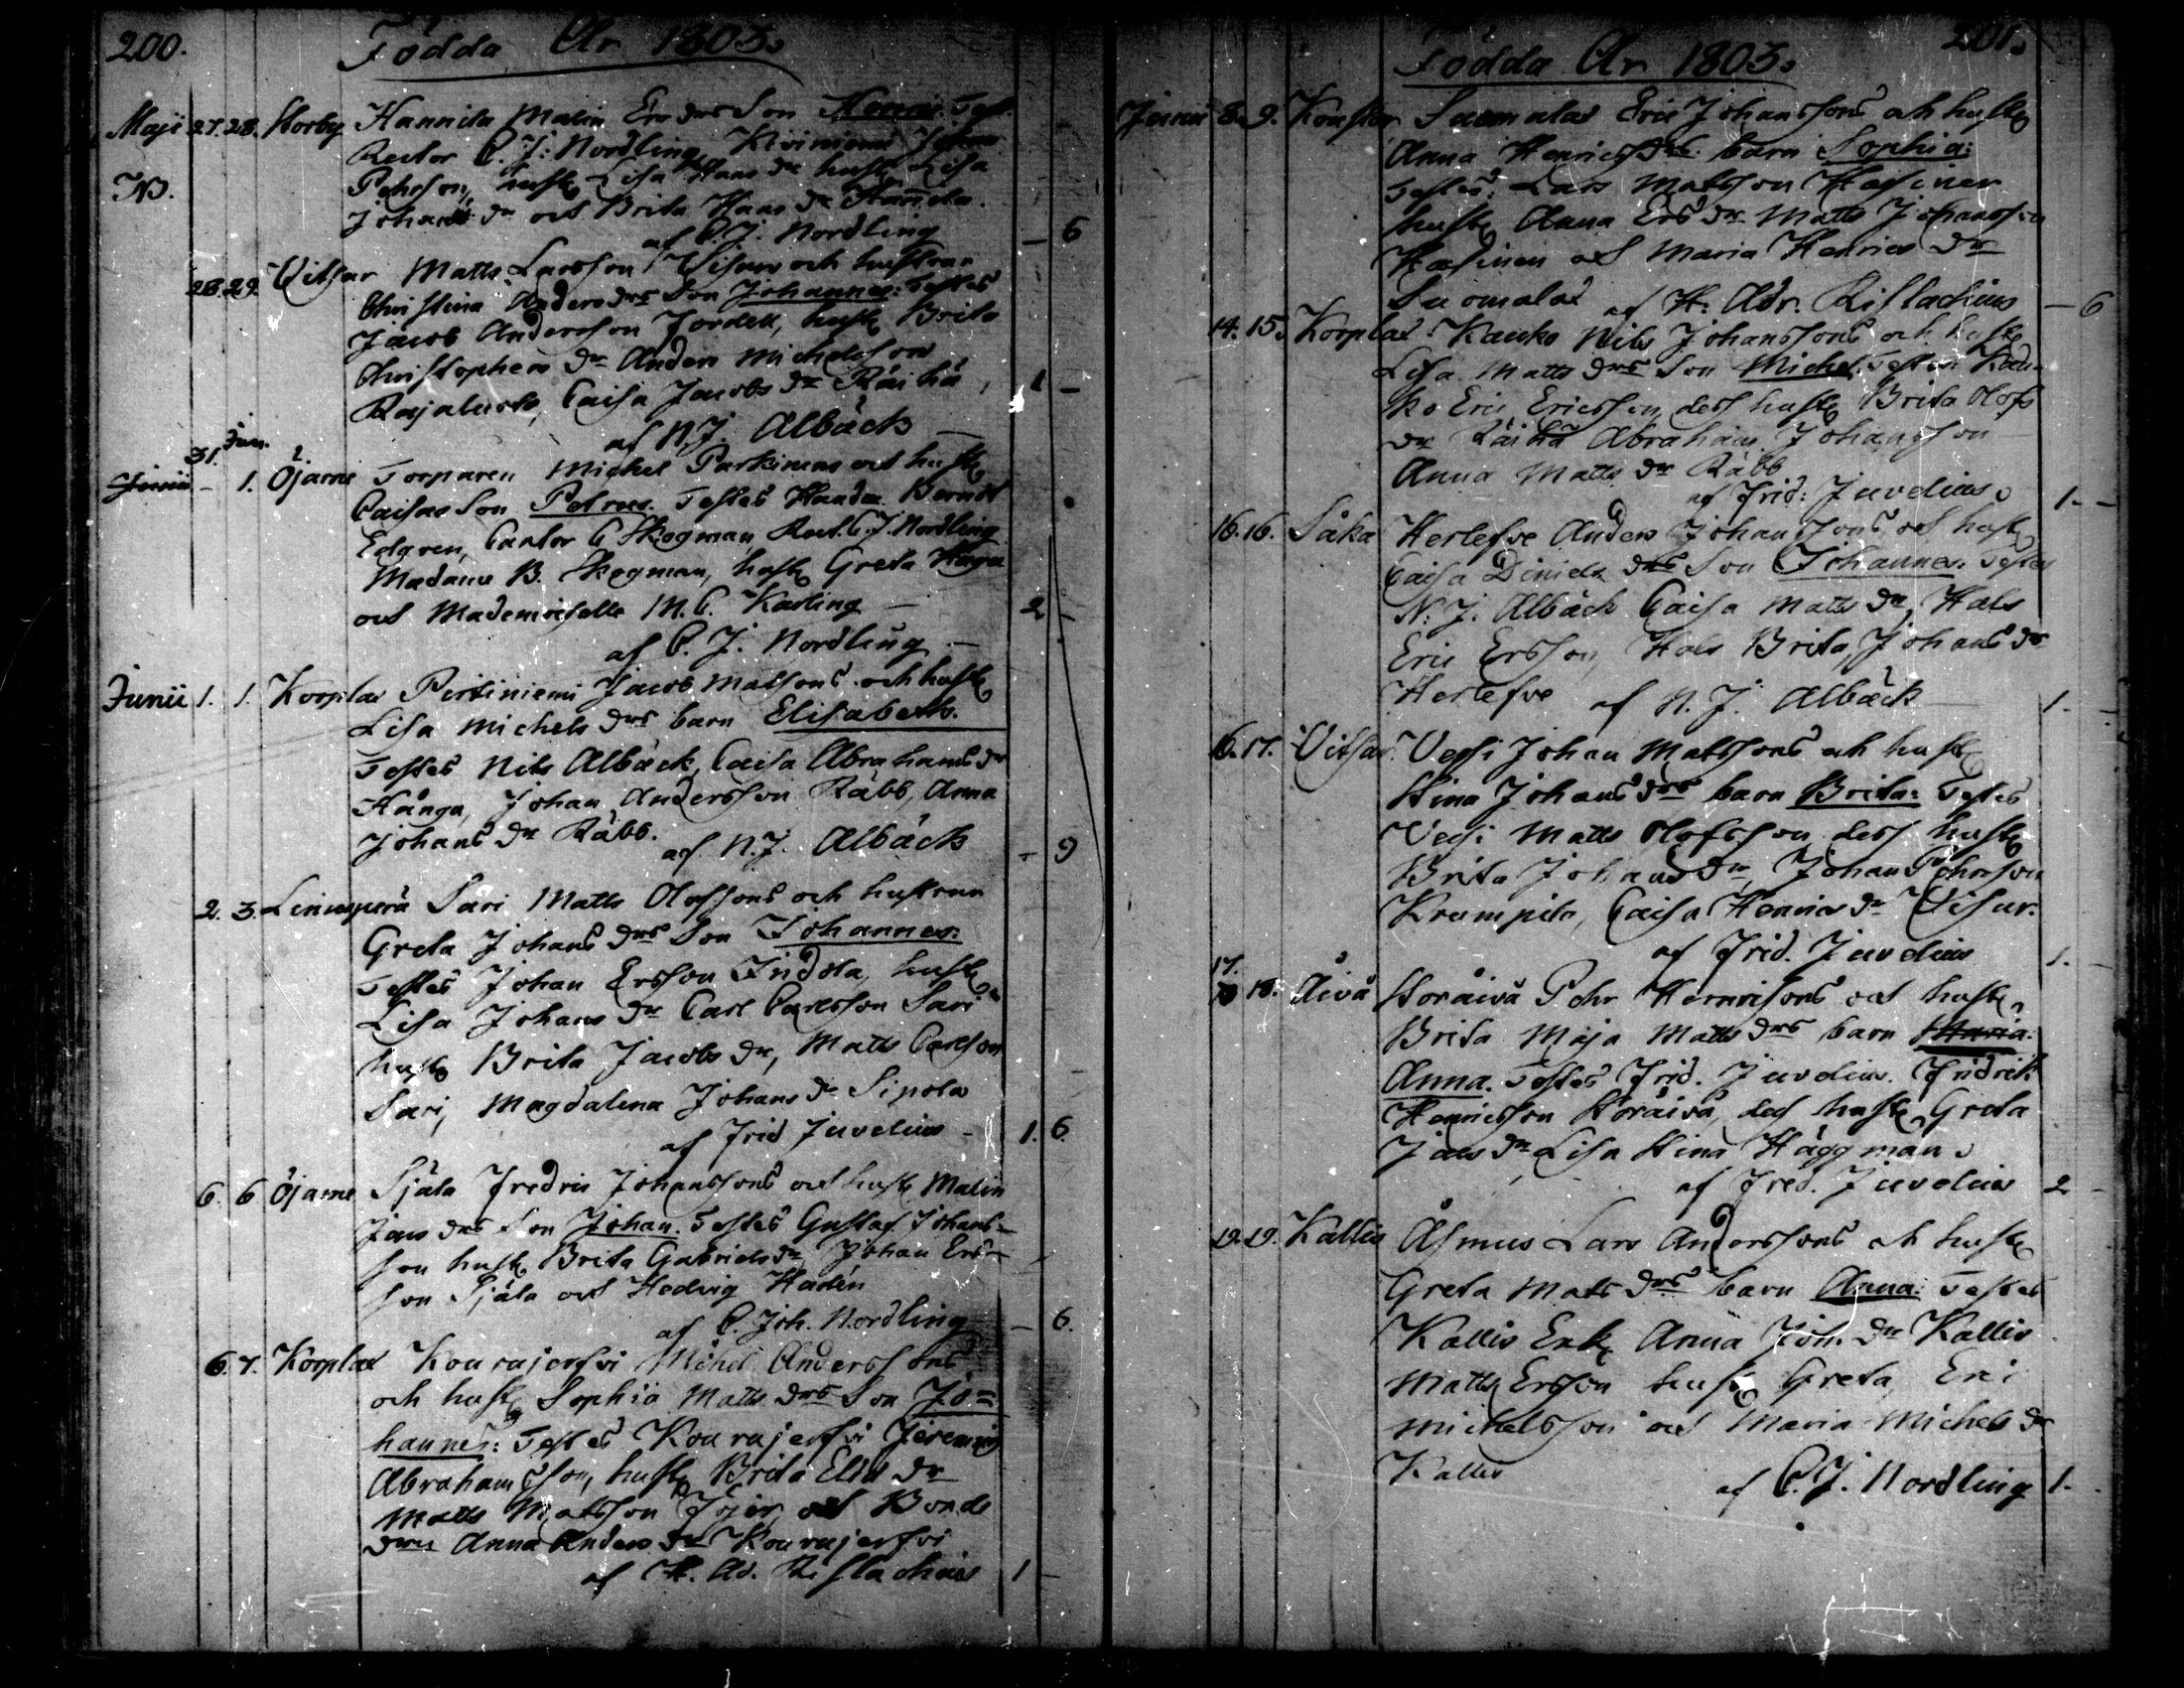 200.
Födda År 1803.
Maji 27. 28. Storby Hannila Malin Ersdrs Son Henric. Test.
Rector C. J. Nordling, Kiviniemi Johan
NB. Pehrson, hustr Lisa Hans dr hustr Lisa
Johans dr och Brita Hans dr Hannila.
af C. J. Nordling — 6
28. 29. Vitsar Matts Larsson Visuri och hustrun
Christina Anders drs Son Johannes: Testes
Jacob Andersson Jordell, hustr Brita
Christophers dr Anders Michelsson
Rajaluoto, Caisa Jacobs dr Räihä, 1 —
af N. J. Albäck —
31. Jun.
Junii – 1. Öjarne Torparen Michel Parkinens och hustr
Caisas Son Petrus. Testes Handn Berndt
Edgren, Cantor C Skogman, Rect. C. J. Nordling
Madame B. Skogman, hustr Greta Haga
och Mademoiselle M. C. Karling — 2 –
af C. J. Nordling —
Junii 1. 1. Korplax Pertiniemi Jacob Matsons och hustr
Lisa Michels drs barn Elisabeth.
Testes Nils Albäck, Caisa Abrahams dr
Hånga, Johan Andersson Räbb, Anna
Johans dr Räbb. af N. J. Albäck – 9
2. 3. Linusperä Sari Matts Olofssons och hustrun
Greta Johans drs Son Johannes:
Testes Johan Ersson Indola, hustr
Lisa Johans dr Carl Carlsson Sari
hustr Brita Jacobs dr, Matts Carlson
Sari, Magdalena Johans dr Sipola
af Frid Juvelius – 1. 6.
6. 6 Öjarne Själa Fredric Johanssons och hustr Malin
Jans drs Son Johan. Testes Gustaf Johans-
son hustr Brita Gabriels dr Johan Ers-
son Själa och Hedvig Hadén
af C. Joh. Nordling — 6.
6. 7. Korplax Kourajerfvi Michel Anderssons
och hustr Sophia Matts drs Son Jo=
hannes: Testes Kourajerfvi Jeremias
Abrahamsson, hustr Brita Elis dr
Matts Matsson Jojer och Bonde
drn Anna Anders dr Kourajerfvi
af H. Ad. Rislachius 1 –
201.
Födda År 1803.
Junii 8. 9. Suomalas Eric Johanssons och hustr
Anna Henrics drs barn Sophia:
Testes: Lars Matsson Hasinen
hustr Anna Ers dr Matts Johansson
Hasinen och Maria Henrics dr
Suomalas af H: Adr. Rislachius — 6
14. 15. Korplax Kauko Nils Johanssons och hustr
Lisa Matts drs Son Michel. Testes: Kau-
ko Eric Ericsson, dess hustr Brita Olofs
dr Räihä Abraham Johansson
Anna Matts dr Räbb
af Frid: Juvelius. 1. –
16. 16. Såka Herlefve Anders Johanssons och hustr
Caisa Daniels drs Son Johannes. Testes
N. J. Albäck Caisa Matts dr Hals
Eric Ersson, Hals Brita, Johans dr
Herlefve af N. J. Albäck 1. –
16. 17. Vitsar. Vessi Johan Matssons och hustr
Stina Johans drs barn Brita: Testes
Vessi Matts Olofsson dess hustr
Brita Johans dr, Johan Pehrsson
Krumpila, Caisa Henrics dr Visur.
af Frid. Juvelius 1. –
17. 18. Åivå Storåivå Pehr Henricsons och hustr
Brita Maja Matts drs barn Maria:
Anna. Testes Frid. Juvelius. Fridrik
Henricsson Storåivå, dess hustr Greta
Jans dr Lisa Stina Häggman.
af Fred. Juvelius 2 –
19. 19. Kallis Åsmus Lars Anderssons och hustr
Greta Mats drs barn Anna: Testes
Kallis Enk. Anna Joh. dr Kallis
Matts Ersson hustr Greta, Eric
Michelsson och Maria Michels dr
Kallis af C. J. Nordling 1.